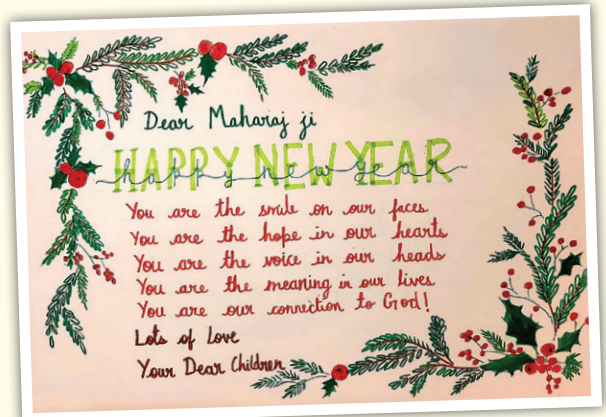 Dear Maharaj ji
HAPPY NEW YEAR
happy new year
You are the smile on our faces
You are the hope in our hearts
You are the voice in our heads
You are the meaning in our lives
You are our connection to God!
Lots of Love
Your Dear Children